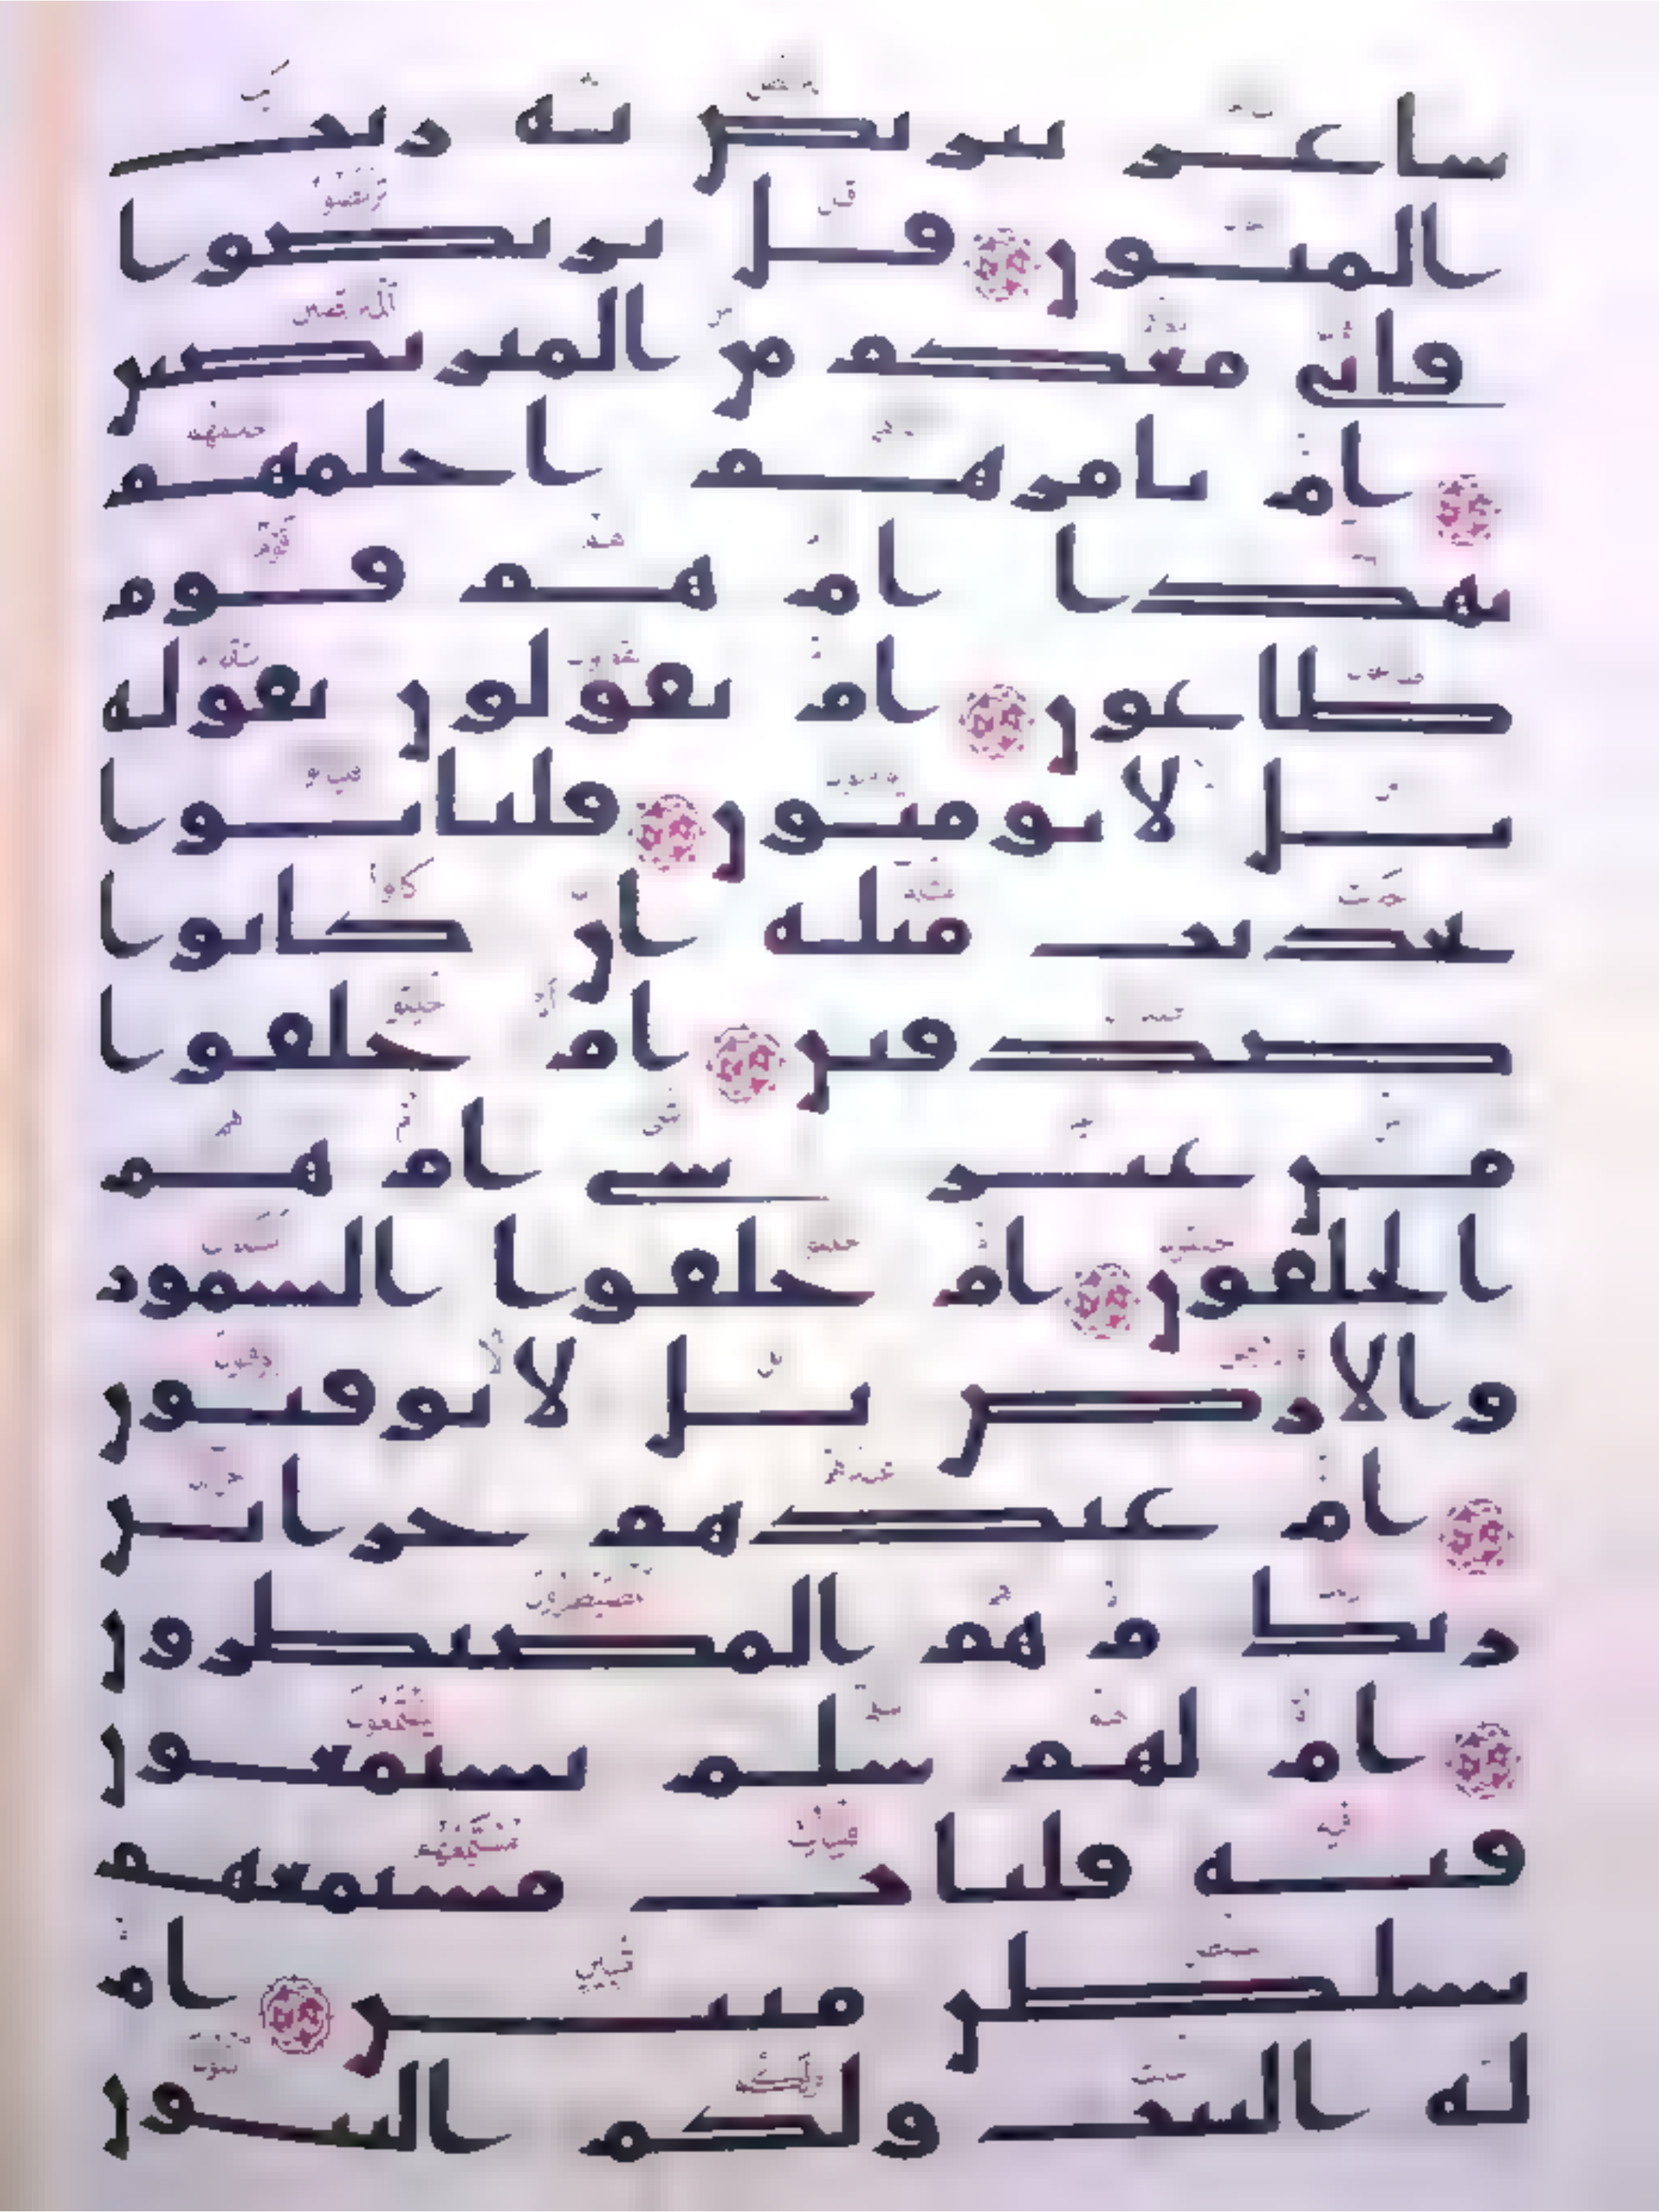 شاعر نتربص به ريب
المنون قل تربصوا
فانى معكم من المتربصين
ام تامرهم احلمهم
بهذا ام هم قوم
طاغون ام يقولون تقوله
بل لا يومنون فلياتوا
بحديث مثله ان كانوا
صدقين ام خلقوا
من غير شى ام هم
الخلقون ام خلقوا السموت
والارض بل لا يوقنون
ام عندهم خزاين
ربك ام هم المصيطرون
ام لهم سلم يستمعون
فيه فليات مستمعهم
بسلطن مبين ام
له البنت ولكم البنون